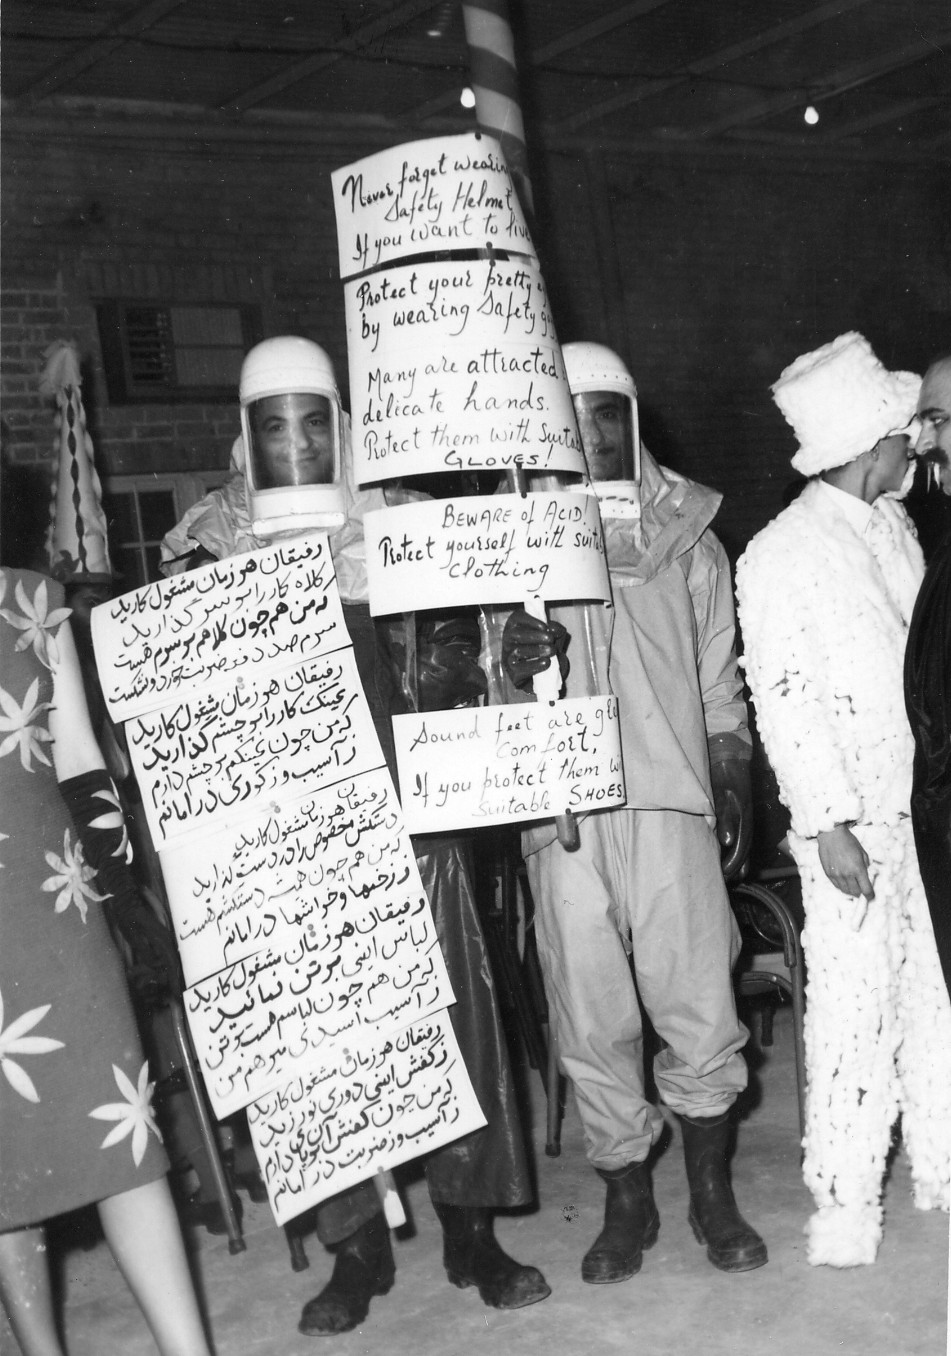 Never forget wearin
Safety Helmet
If you want to live
Protect your pretty
by wearing Safety
Many are attracted
delicate hands.
Protect them with Suita
GLOVES!
BEWARE of ACID!
Protect yourself with suita
clothing
Sound feet are
Comfort,
If you protect them w
Suitable SHOES
رفیقان هر زمان مشغول کارید
کلاه کار را بر سر گذارید
که من هم چون کلاهم بر سرم هست
سرم صد دفعه ضربت خورد و نشکست
رفیقان هر زمان مشغول کارید
عینک کار را بر چشم گذارید
که من چون عینکم بر چشم دارم
ز آسیب و ز کوری در امانم
رفیقان هر زمان مشغول کارید
دستکش مخصوص را در دست گذارید
که من هم چون همیشه دستکشم هست
ز زخمها و خراشها در امانم
رفیقان هر زمان مشغول کارید
لباس ایمنی بر تن نمائید
که من هم چون لباسم هست بر تن
ز آسیب اسیدی میرهم من
رفیقان هر زمان مشغول کارید
ز کفش ایمنی دوری نورزید
که من چون کفش آن بر پا دارم
ز آسیب و ز ضربت در امانم